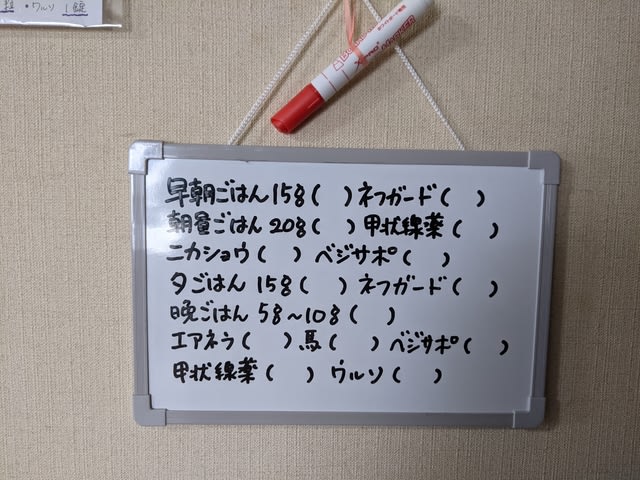 ・ウルソ 1錠
早朝ごはん 15g( ) ネフガード( )
朝昼ごはん 20g( ) 甲状線薬( )
ニカショウ( ) ベジサポ( )
夕ごはん 15g( ) ネフガード( )
晩ごはん 5g〜10g( )
エアネラ( ) 馬( ) ベジサポ( )
甲状線薬( ) ウルソ( )